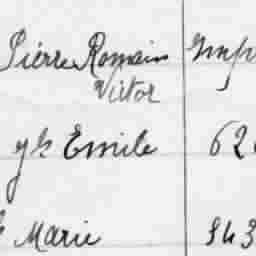 Pierre Romain
Victor
Emile 62
Marie 943